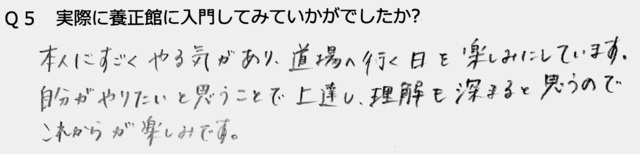 Ｑ５　実際に養正館に入門してみていかがでしたか?
本人にすごくやる気があり、道場へ行く日を楽しみにしています。
自分がやりたいと思うことで上達し、理解も深まると思うので
これからが楽しみです。